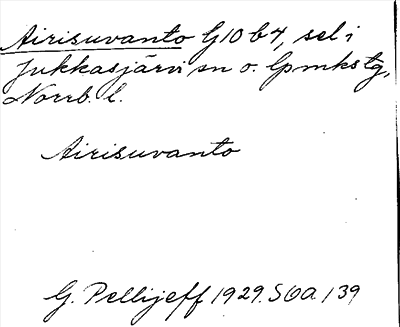 Airisuvanto G10b4, sel i
Jukkasjärvi sn o. lpmkstg,
Norrb. l.
Airisuvanto
G. Pellijeff 1929. SOA 139